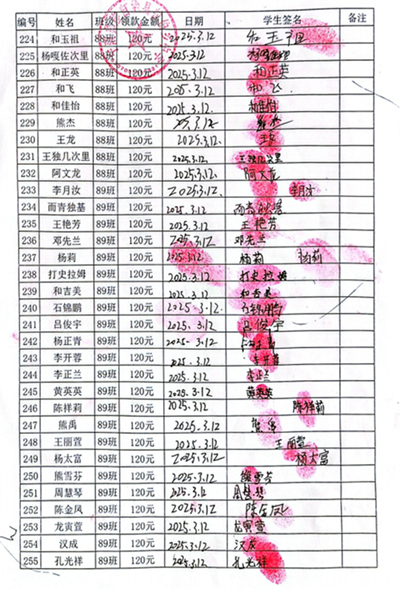 编号 姓名 班级 领款金额 日期 学生签名 备注
224 和玉祖 88班 120元 2025.3.12
225 杨嘎佐次里 88班 120元 2025.3.12
226 和正英 88班 120元 2025.3.12 和正英
227 和飞 88班 120元 2025.3.12 和飞
228 和佳怡 88班 120元 2025.3.12 和佳怡
229 熊杰 88班 120元 3.12
230 王龙 88班 120元 2025.3.12 王龙
231 王独几次里 88班 120元 2025.3.12 王独几次里
232 阿文龙 88班 120元 2025.3.12 阿文龙
233 李月汝 89班 120元 2025.3.12 李月汝
234 雨青独基 89班 120元 2025.3.12 雨青独基
235 王艳芳 89班 120元 2025.3.12 王艳芳
236 邓先兰 89班 120元 2025.3.12 邓先兰
237 杨莉 89班 120元 2025.3.12 杨莉 杨莉
238 打史拉姆 89班 120元 2025.3.12 打史拉姆
239 和吉美 89班 120元 2025.3.12 和吉美
240 石锦鹏 89班 120元 2025.3.12 石锦鹏
241 吕俊宇 89班 120元 2025.3.12 吕俊宇
242 杨正青 89班 120元 2025.3.12
243 李开蓉 89班 120元 2025.3.12 李开蓉
244 李正兰 89班 120元 2025.3.12 李正兰
245 黄英英 89班 120元 2025.3.12 黄英英
246 陈祥莉 89班 120元 2025.3.12 陈祥莉
247 熊禹 89班 120元 2025.3.12 熊禹
248 王丽萱 89班 120元 2025.3.12 王丽萱
249 杨太富 89班 120元 2025.3.12 杨太富
250 熊雪芬 89班 120元 2025.3.12 熊雪芬
251 周慧琴 89班 120元 2025.3.12 周慧琴
252 陈金凤 89班 120元 2025.3.12 陈金凤
253 龙寅萱 89班 120元 2025.3.12 龙寅萱
254 汉成 89班 120元 2025.3.12 汉成
255 孔光祥 89班 120元 2025.3.12 孔光祥